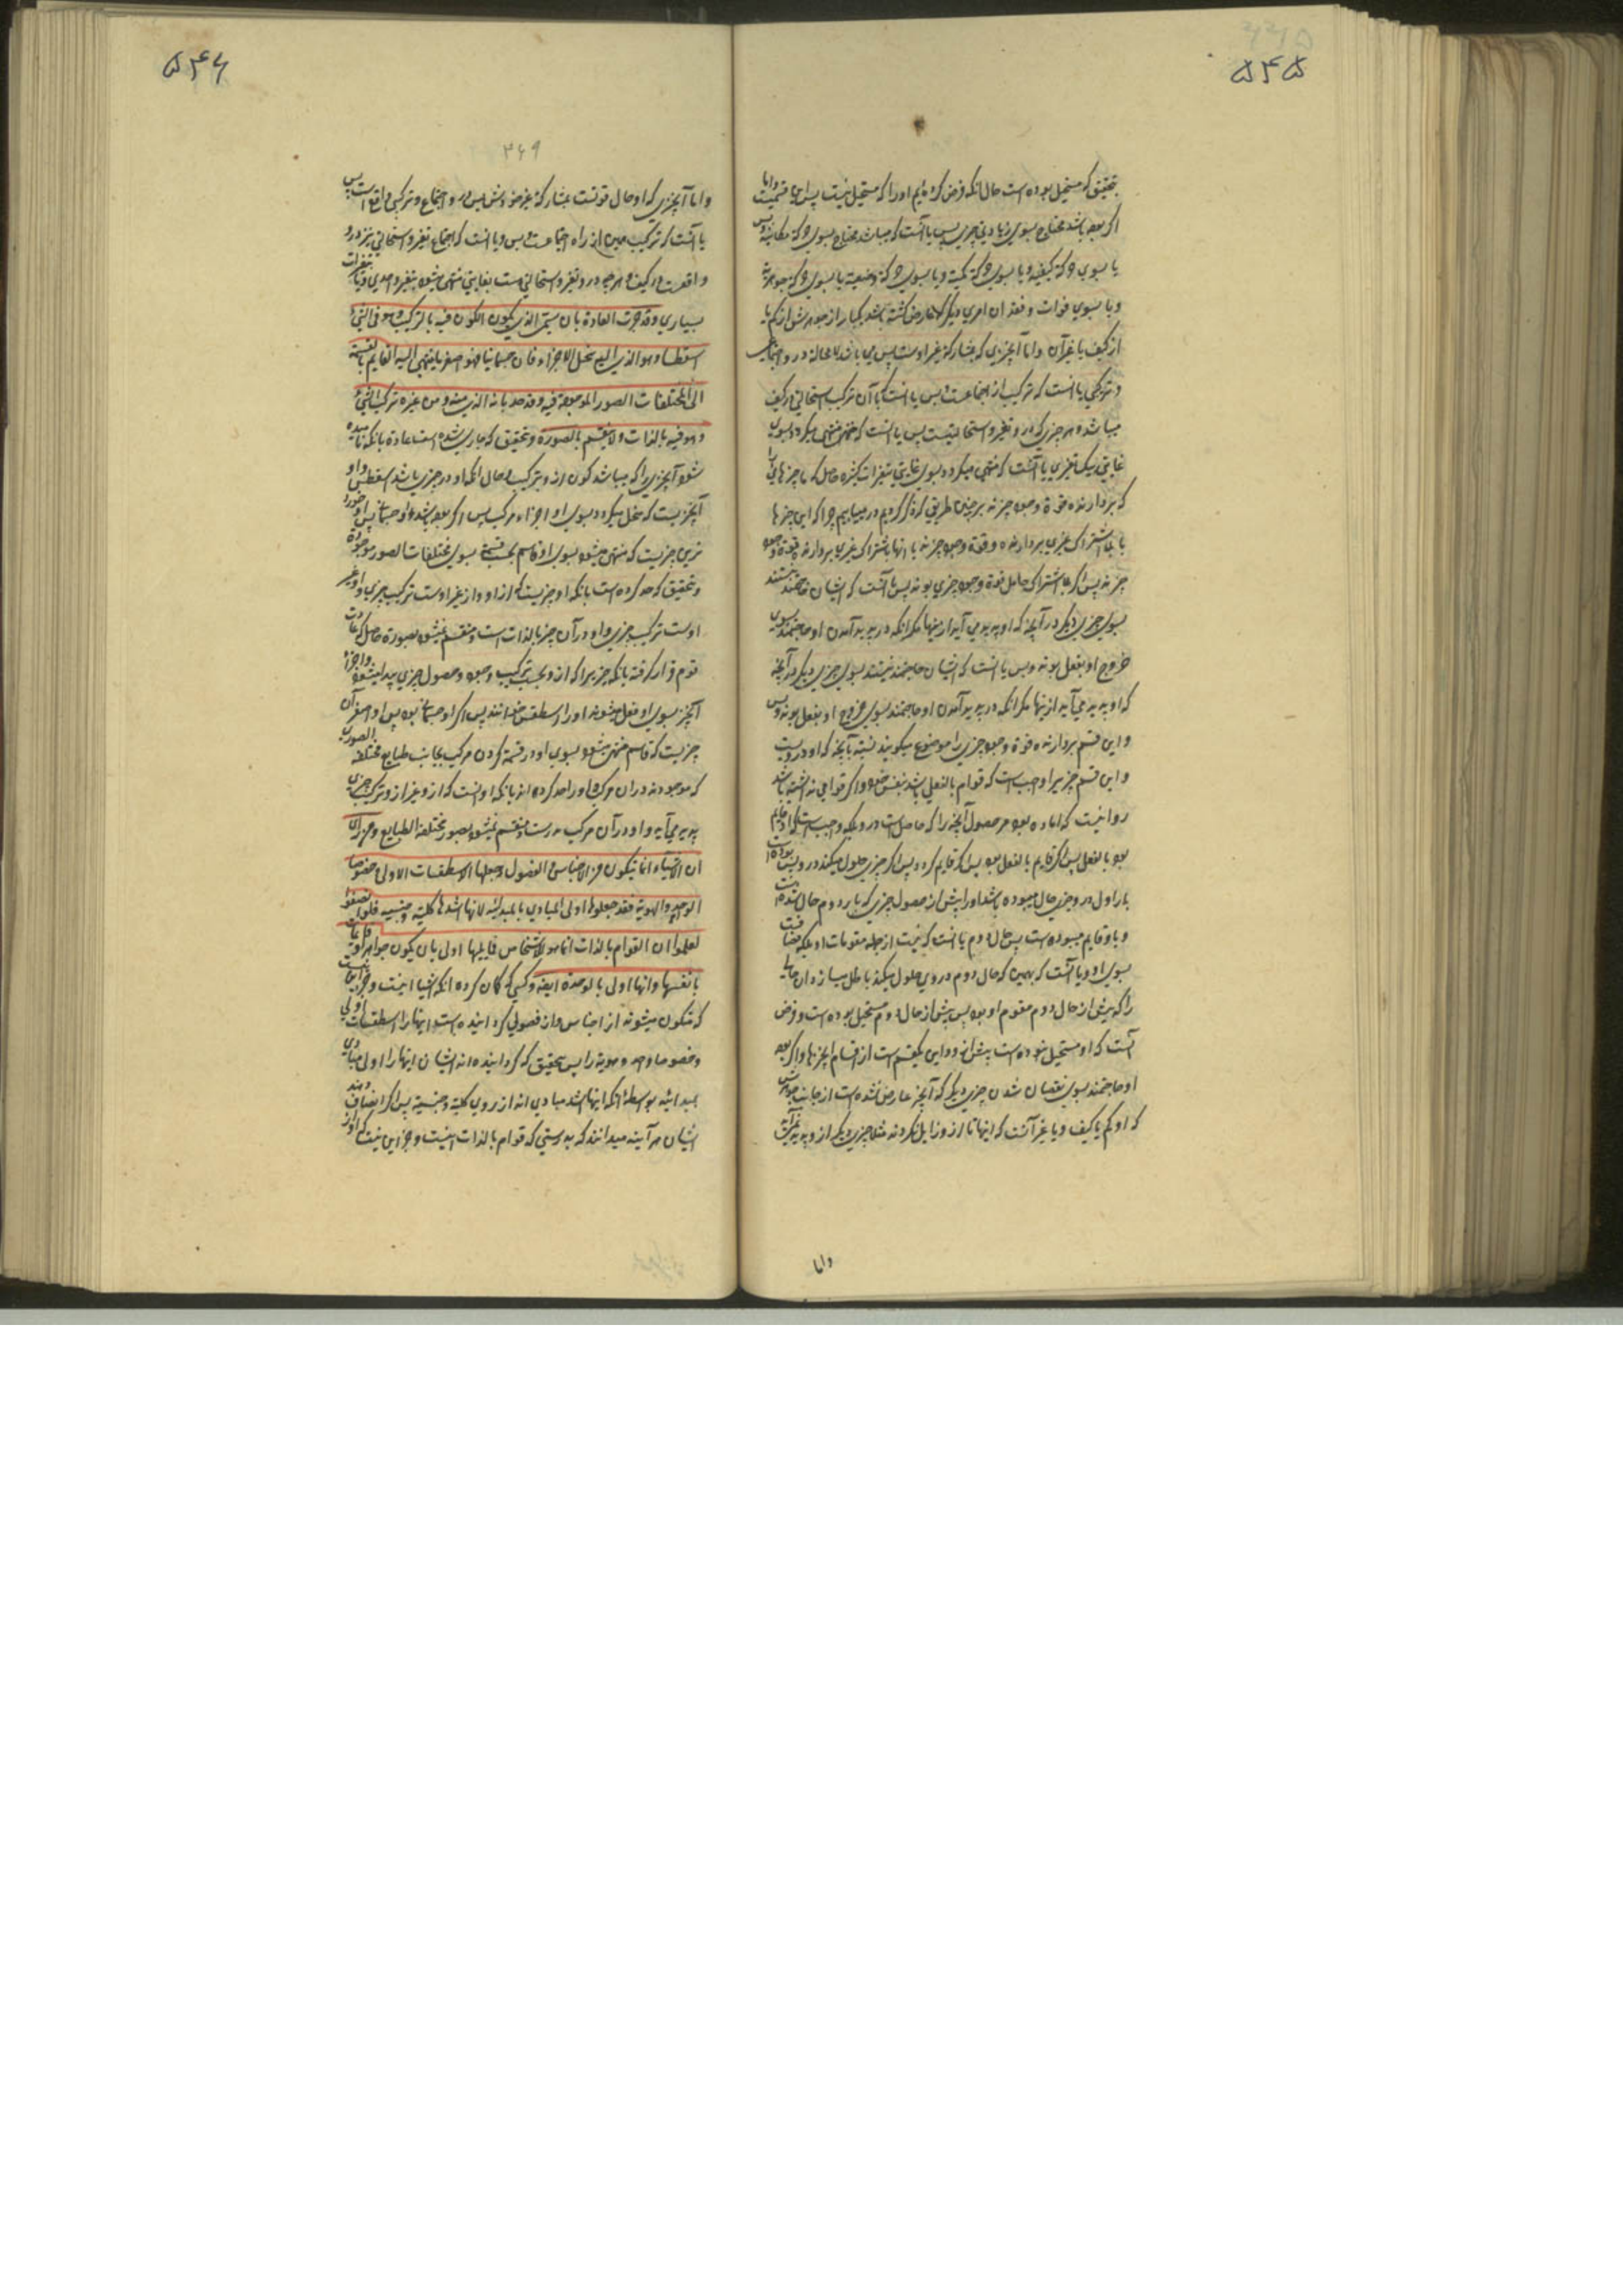 ۵۴۵
تحقیق که مستحیل بوده است حال آنکه فرض کرده ایم او را که مستحیل نیست پس این قسمیست واما
اگر بوده باشد محتاج بسوی زیادتی چیزی پس یا آنست که میباشد محتاج بسوی حرکة مکانیة وبس
یا بسوی حرکة کیفیة ویا بسوی حرکة کمیة ویا بسوی حرکة وضعیة یا بسوی حرکة جوهریة
ویا بسوی فوات وفقدان امری دیگر که عارض گشته باشد یکبار از جوهرش از کم یا
از کیف یا غیر آن واما آنچیزی که بمشارکة غیر اوست پس می باشد لا محاله در و اجتماعی
وترکیبی یا آنست که ترکیب از اجتماعست وبس یا آنست که با آن ترکیب استحالتی در کیف
میباشد وهر چیزی که در و تغیر و استحالتیست پس یا آنست که منتهی میگردد بسوی
غایتی بیک تغیری یا آنست که منتهی میگردد بسوی غایتی بتغیرات کثیره حاصل که با چیزهائی را
که بردارنده قوة وجود چیزند برچنین طریقی که ذکر کردیم در میابیم چرا که این چیزها
یا بلا اشتراک غیری بردارنده و قوة وجود چیزند یا آنها باشتراک غیری بردارنده قوة وجود
چیزند پس اگر بلا اشتراک حامل قوة وجود چیزی بوند پس یا آنست که ایشان محتاجند هستند
بسوی چیزی دیگر در آنچه که او پدید می آید از اینها مگر آنکه در پدید آمدن او حاجتمند بسوی
خروج او بفعل بوند وبس یا آنست که ایشان حاجتمند نیستند بسوی چیزی دیگر در آنچه
که او پدید می آید از اینها مگر آنکه در پدید آمدن او حاجتمند بسوی خروج او بفعل بوند وبس
واین قسم بردارنده قوة وجود چیزی را موضوع میگویند نسبة بآنچه که او درویست
واین قسم چیزیرا واجب است که قوام بالفعلی باشد بنفس خود واگر قوامی نداشته باشد
روا نیست که اماده بود مر حصول آنچه را که حاصل است در و بلکه واجب است که او قایم
بود بالفعل پس اگر قایم بالفعل بود پس اگر قایم گردد پس اگر چیزی حلول میکند درو پس بوده است
بار اول درو چیزی حال میبوده باشد او را پیش از حصول چیزی که بار دوم حال شده است
وباو قایم میبوده است پس حال دوم یا آنست که نیست از جمله مقومات او بلکه مضافست
بسوی او ویا آنست که بهمین که حال دوم در وی حلول میکند باطل میسازد آن حالی
را که پیش از حال دوم مقوم او بود پس پیش از حال دوم مستحیل بوده است وفرض
آنست که او مستحیل نبوده است پیش ازو واین یکقسم است از اقسام این چیزها واگر بود
او حاجتمند بسوی نقصان شدن چیزی دیگر که آنچیز عارض نشده است از جانب جوهرش
که او کم یا کیف ویا غیر آنست که اینها تا ازو زایل نکردند مثلا چیزی دیگر ازو پدید
واما
۵۴۶
۲۶۹
واما آنچیزی که او حال قوتست بمشارکة غیر خودش پس در و اجتماع وترکیبی واقع است پس
یا آنست که ترکیب مبین از راه اجتماعست وبس ویا آنست که اجتماع تغیر و استحالتی نیز درو
واقعست در کیف وهر چه در و تغیر و استحالتی هست بغایتی منتهی میشود بتغیر واحدی ویا بتغیرات
بسیاری وقد جرت العادة بان یسمی الذی یکون الکون فیه بالترکیب وهو فی الشئ
اسطقسا وهو الذی الیه تنحل الاجزاء فان جسمانیا فهو اصغر ما ینتهی الیه القاسم بالقسمة
الی المختلفات الصور الموجودة فیه وقد حد بانه الذی منه ومن غیره ترکیب الشئ
وهو فیه بالذات ولا ینقسم بالصورة وتحقیق که جاری شده است عادة بانکه نامیده
شود آنچیزی را که میباشد کون از و بترکیب وحال آنکه او در چیزی باشد اسطقس واو
آنچیزیست که منحل میگردد بسوی او اجزاء مرکب پس اگر بوده باشد او جسمانی پس او خورد
ترین چیزیست که منتهی میشود بسوی او قاسم بحسب قسمة بسوی مختلفات الصور موجوده
وتحقیق که حد کرده است بانکه او چیزیست که از او واز غیر اوست ترکیب چیزی واو غیر
اوست ترکیب چیزی واو در آن چیز بالذات است ومنقسم نمیشود بصورة حاصل که عادت
قوم قرار گرفته بانکه چیزیرا که ازو بحسب ترکیب وجود وحصول چیزی پیدا میشود واجزاء
آنچیز بسوی او منحل میشوند او را اسطقس خوانند پس اگر او جسمانی بود پس او اصغر آن
چیزیست که قاسم منتهی میشود بسوی او در قسمة کردن مرکب بجانب طبایع مختلفة الصوری
که موجودند در آن مرکب واو را حد کرده اند بانکه او آنست که ازو وغیر ازو ترکیب چیزی
پدید می آید واو در آن مرکب بذات است ومنقسم نمیشود بصور مختلفة الطبایع ومن رای
ان الاشیاء انما یتکون من الاجناس والفصول وجعلها الاسطقسات الاولی خصوصا
الوحدة والهویة فقد جعلوها اولی المبادی بالمبدائیة لانها اشدها کلیته وجنسیه فلو انصفوا
لعلموا ان القوام بالذات انما هو للاشخاص فما یلیها اولی بان یکون جواهر وقائمات
بانفسها وانها اولی بالوحدة ایضا وکسی که گمان کرده آنکه اشیا اینست وجز این نیست
که متکون میشوند از اجناس واز فصولی گردانیده است اینها را اسطقسات اولی
وخصوصا وحدة وهویة را پس تحقیق که گردانیده اند ایشان اینها را اولی مبادی
بمبدائیة بواسطه آنکه اینها اشد مبادی اند از روی کلیة وجنسیة پس اگر انصاف دهند
ایشان هر آینه میدانند که بدرستی که قوام بالذات اینست وجز این نیست که او از